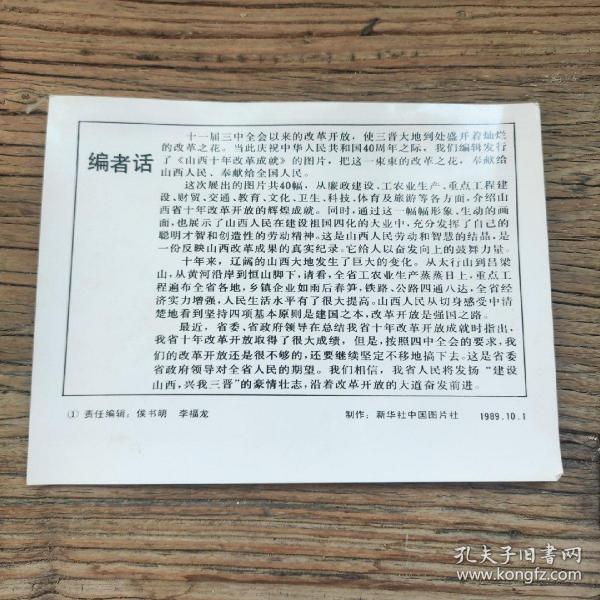 编者话
十一届三中全会以来的改革开放，使三晋大地到处盛开着灿烂
的改革之花。当此庆祝中华人民共和国40周年之际，我们编辑发行
了《山西十年改革成就》的图片，把这一束束的改革之花，奉献给
山西人民、奉献给全国人民。
这次展出的图片共40幅，从廉政建设、工农业生产、重点工程建
设、财贸、交通、教育、文化、卫生、科技、体育及旅游等各方面，介绍山
西省十年改革开放的辉煌成就。同时，通过这一幅幅形象、生动的画
面，也展示了山西人民在建设祖国四化的大业中，充分发挥了自己的
聪明才智和创造性的劳动精神。这是山西人民劳动和智慧的结晶，是
一份反映山西改革成果的真实纪录。它给人以奋发向上的鼓舞力量。
十年来，辽阔的山西大地发生了巨大的变化。从太行山到吕梁
山，从黄河沿岸到恒山脚下，请看，全省工农业生产蒸蒸日上，重点工
程遍布全省各地，乡镇企业如雨后春笋，铁路、公路四通八达，全省经
济实力增强，人民生活水平有了很大提高。山西人民从切身感受中清
楚地看到坚持四项基本原则是建国之本，改革开放是强国之路。
最近，省委、省政府领导在总结我省十年改革开放成就时指出，
我省十年改革开放取得了很大成绩，但是，按照四中全会的要求，我
们的改革开放还是很不够的，还要继续坚定不移地搞下去。这是省委
省政府领导对全省人民的期望。我们相信，我省人民将发扬“建设
山西，兴我三晋”的豪情壮志，沿着改革开放的大道奋发前进。
① 责任编辑：侯书明 李福龙 制作：新华社中国图片社 1989.10.1
孔夫子旧书网
www.kongfz.com